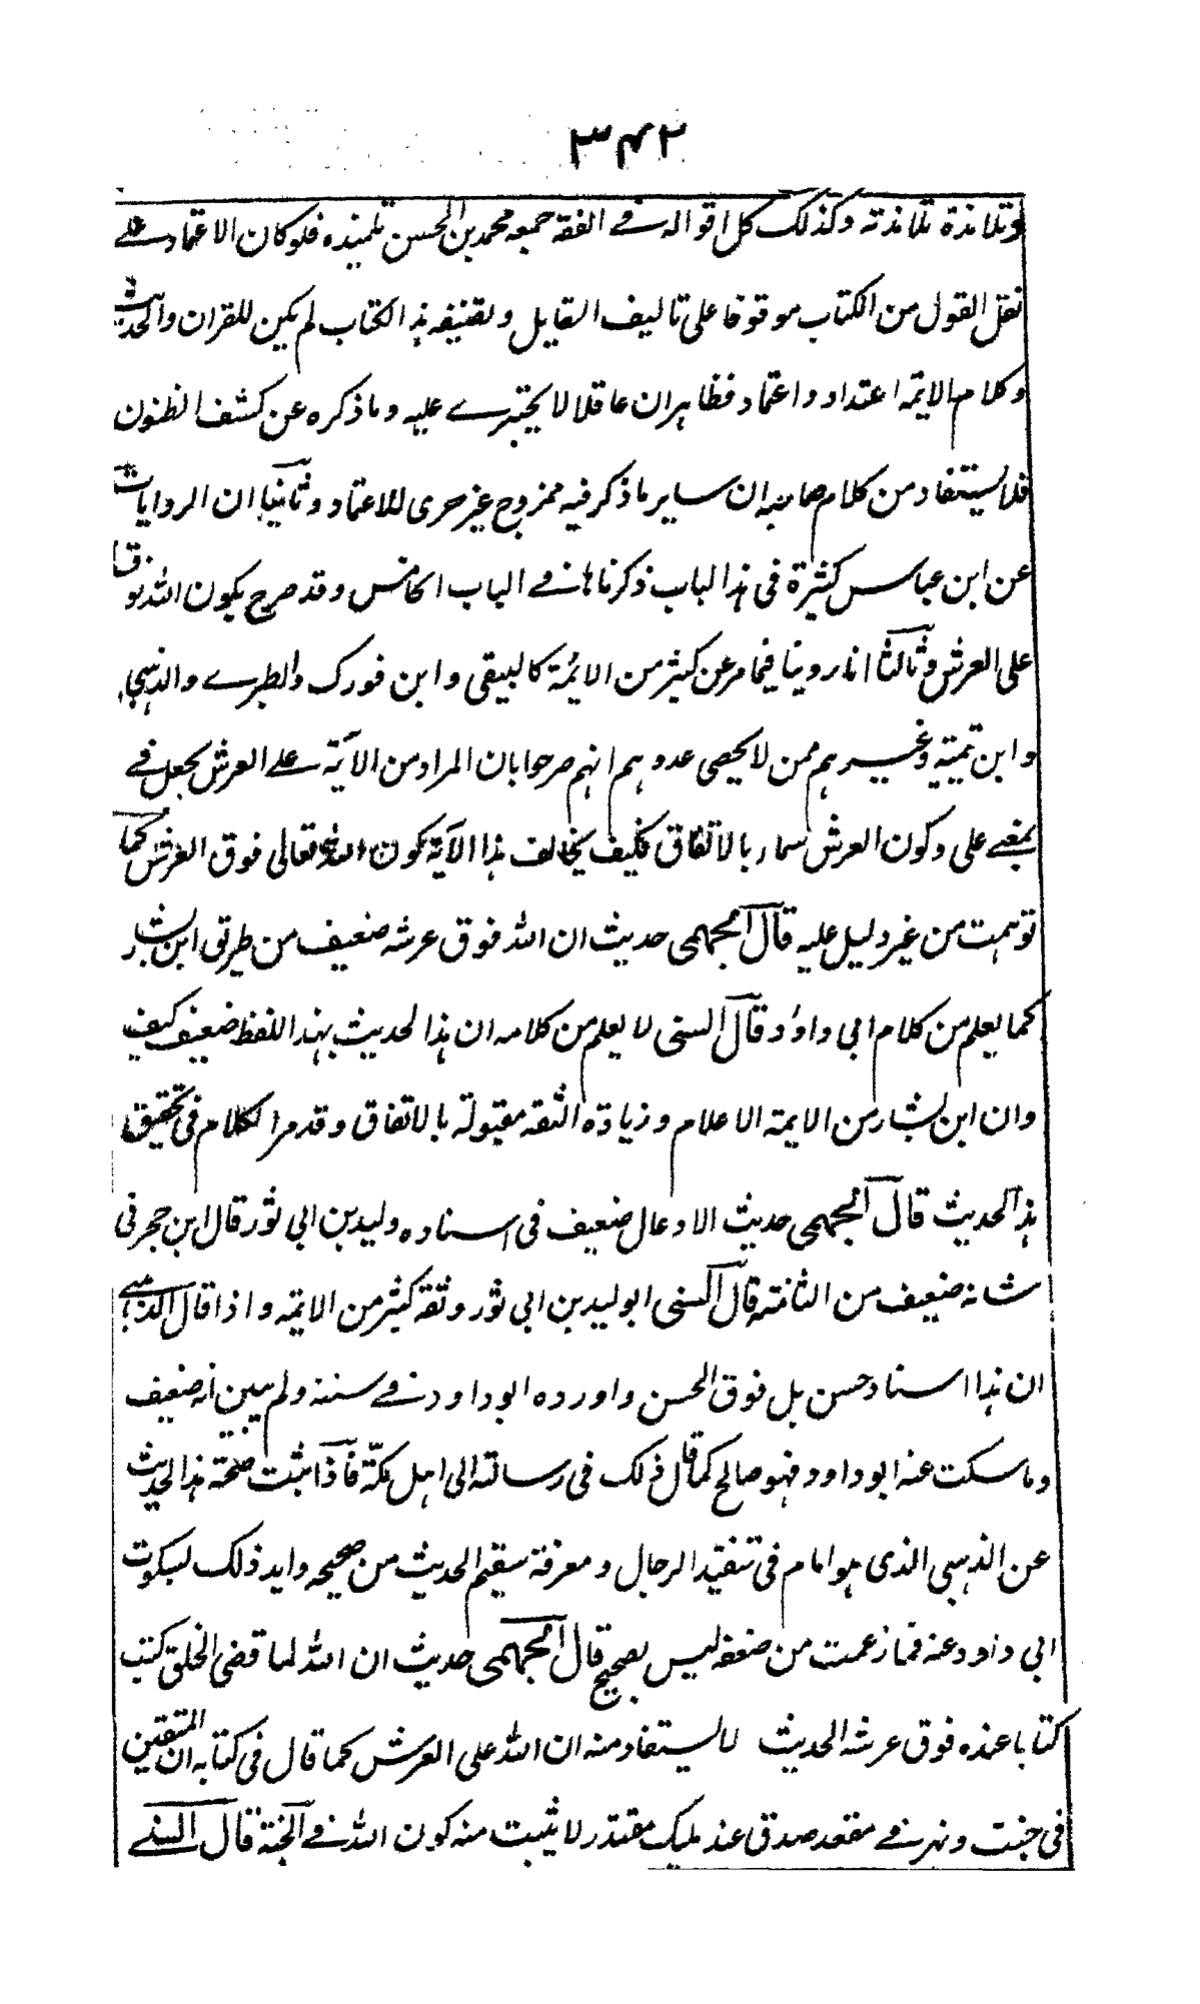 ٣٤٢
وتلامذة تلامذته وكذلك كل اقواله فى الفقه جمعه محمد بن الحسن تلميذه فلو كان الاعتماد على
نقل القول من الكتاب موقوفا على تاليف القايل وتصنيفه هذا الكتاب لم يكن للقران والحديث
وكلام الايمة اعتداد واعتماد فظاهر ان عاقلا لا يجترے عليه وما ذكره عن كشف الظنون
فلا يستفاد من كلام صاحبه ان ساير ما ذكر فيه ممزوج غير حرى للاعتماد وثانيا ان الروايات
عن ابن عباس كثيرة فى هذا الباب ذكرناها فى الباب الخامس وقد صرح بكون الله فوق
على العرش وثالثا انا روينا فيما مر عن كثير من الائمة كالبيهقى وابن فورك والطبرے والذهبى
وابن تيمية وغيرهم ممن لا يحصى عددهم انهم صرحوا بان المراد من الآية على العرش بجعل فى
بمعنے على وكون العرش سماء بالاتفاق فكيف يخالف هذا الآية كون الله تعالى فوق العرش كما
توهمت من غير دليل عليه قال الجهمى حديث ان الله فوق عرشه ضعيف من طريق ابن بشار
كما يعلم من كلام ابى داؤد قال السنى لا يعلم من كلامه ان هذا الحديث بهذا اللفظ ضعيف كيف
وان ابن بشار من الايمة الاعلام وزيادة الثقه مقبولة بالاتفاق وقد مر الكلام فى تحقيق
هذا الحديث قال الجهمى حديث الاوعال ضعيف فى اسناده وليد بن ابى ثور قال ابن حجر فى
شانه ضعيف من الثامنة قال السنى ابو ليد بن ابى ثور وثقه كثير من الايمة واذا قال الذهبے
ان هذا اسناد حسن بل فوق الحسن واورده ابو داود فى سننه ولم يبين انه ضعيف
وما سكت عنه ابو داود فهو صالح كما قال ذلك فى رسالته الى اهل مكة فاذا ثبت صحة هذا الحديث
عن الذهبى الذى هو امام فى تنقيد الرجال ومعرفة سقيم الحديث من صحيحه وايد ذلك بسكوت
ابى داود عنه فما زعمت من ضعفه ليس بصحيح قال الجهمى حديث ان الله لما قضى الخلق كتب
كتابا عنده فوق عرشه الحديث لا يستفاد منه ان الله على العرش كما قال فى كتابه ان المتقين
فى جنت ونهر فى مقعد صدق عند مليك مقتدر لا يثبت منه كون الله فى الجنة قال السنے